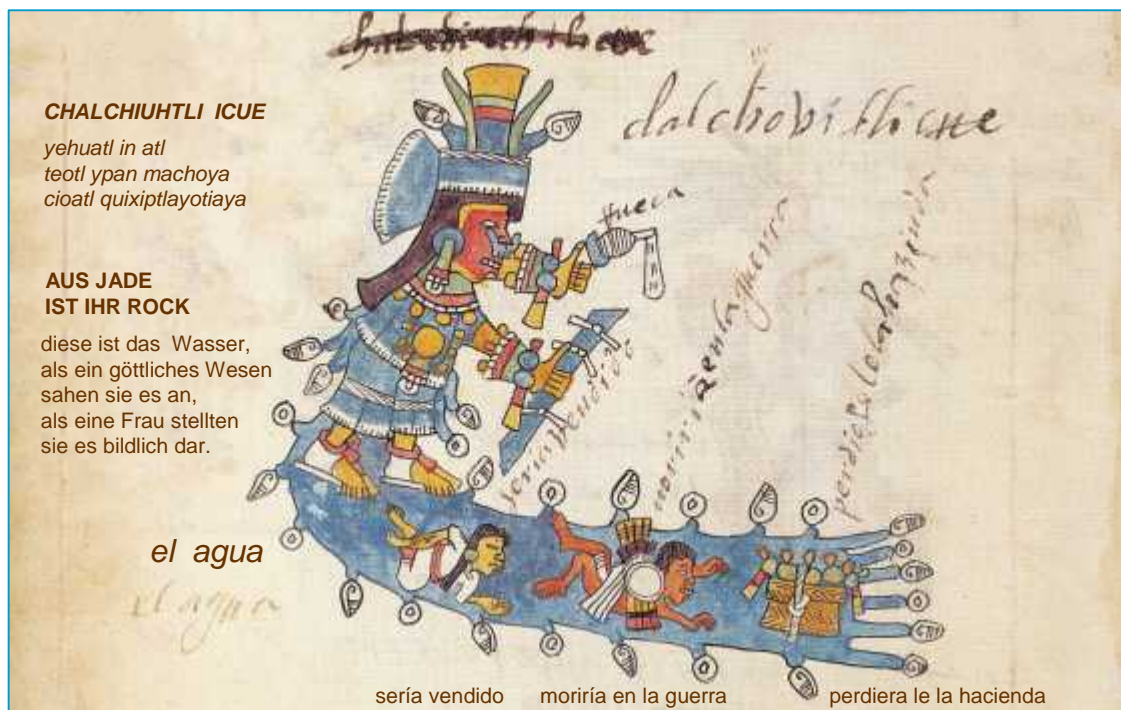 chalchiuhtli cue
chalchovitli cue
CHALCHIUHTLI ICUE
yehuatl in atl
teotl ypan machoya
cioatl quixiptlayotiaya
AUS JADE
IST IHR ROCK
diese ist das Wasser,
als ein göttliches Wesen
sahen sie es an,
als eine Frau stellten
sie es bildlich dar.
Rueca
seria vendido
moriria en la guerra
el agua
el agua
sería vendido moriría en la guerra perdiera le la hacienda